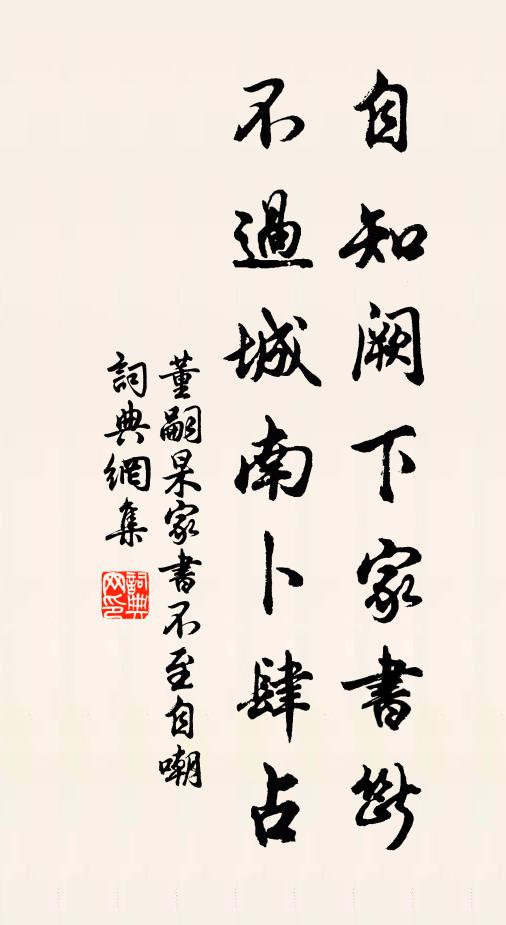 自知阙下家書断
不過城南卜肆占
董嗣杲家書不至自嘲
詞典網集
詞典網印